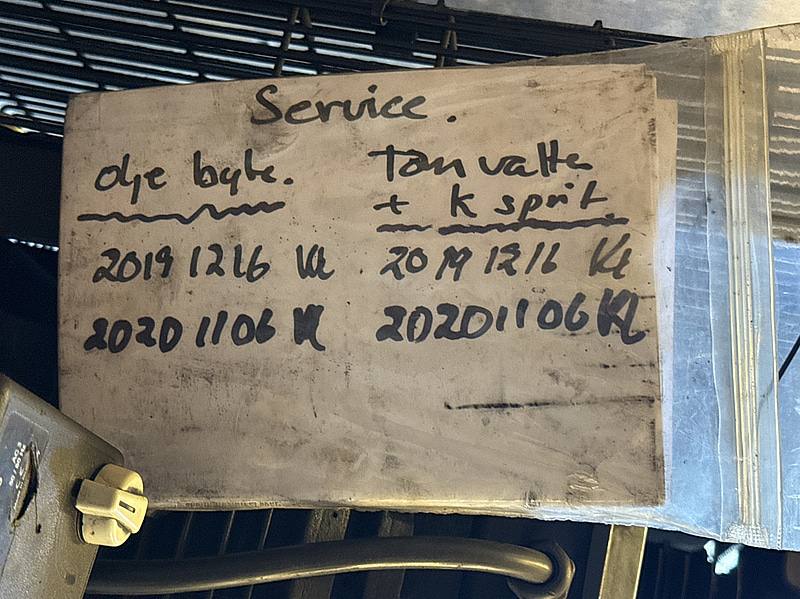 Service.
olje byte.
Tom vatten
+ k sprit.
20191216 KL
20191216 KL
20201106 KL
20201106 KL